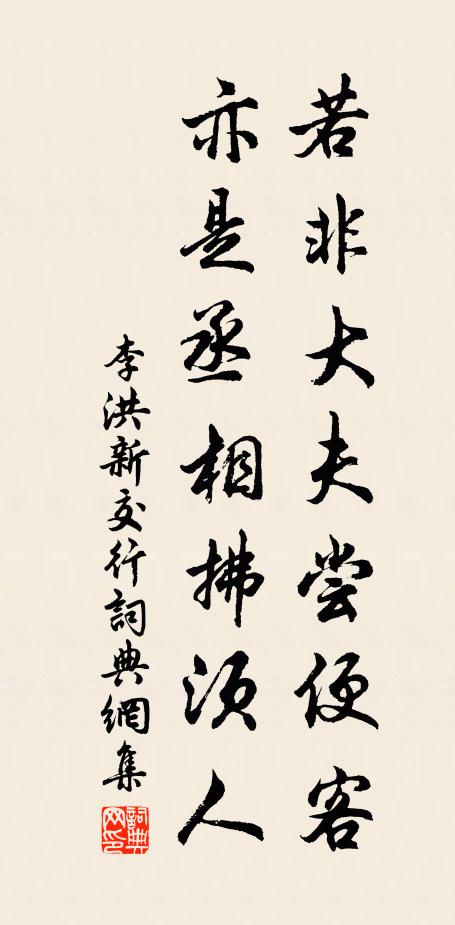 若非大夫尝便客
亦是丞相拂须人
李洪新交行詞典網集
詞典
网印